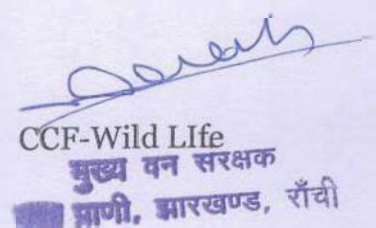 CCF-Wild LIfe
मुख्य वन सरक्षक
प्राणी, झारखण्ड, राँची